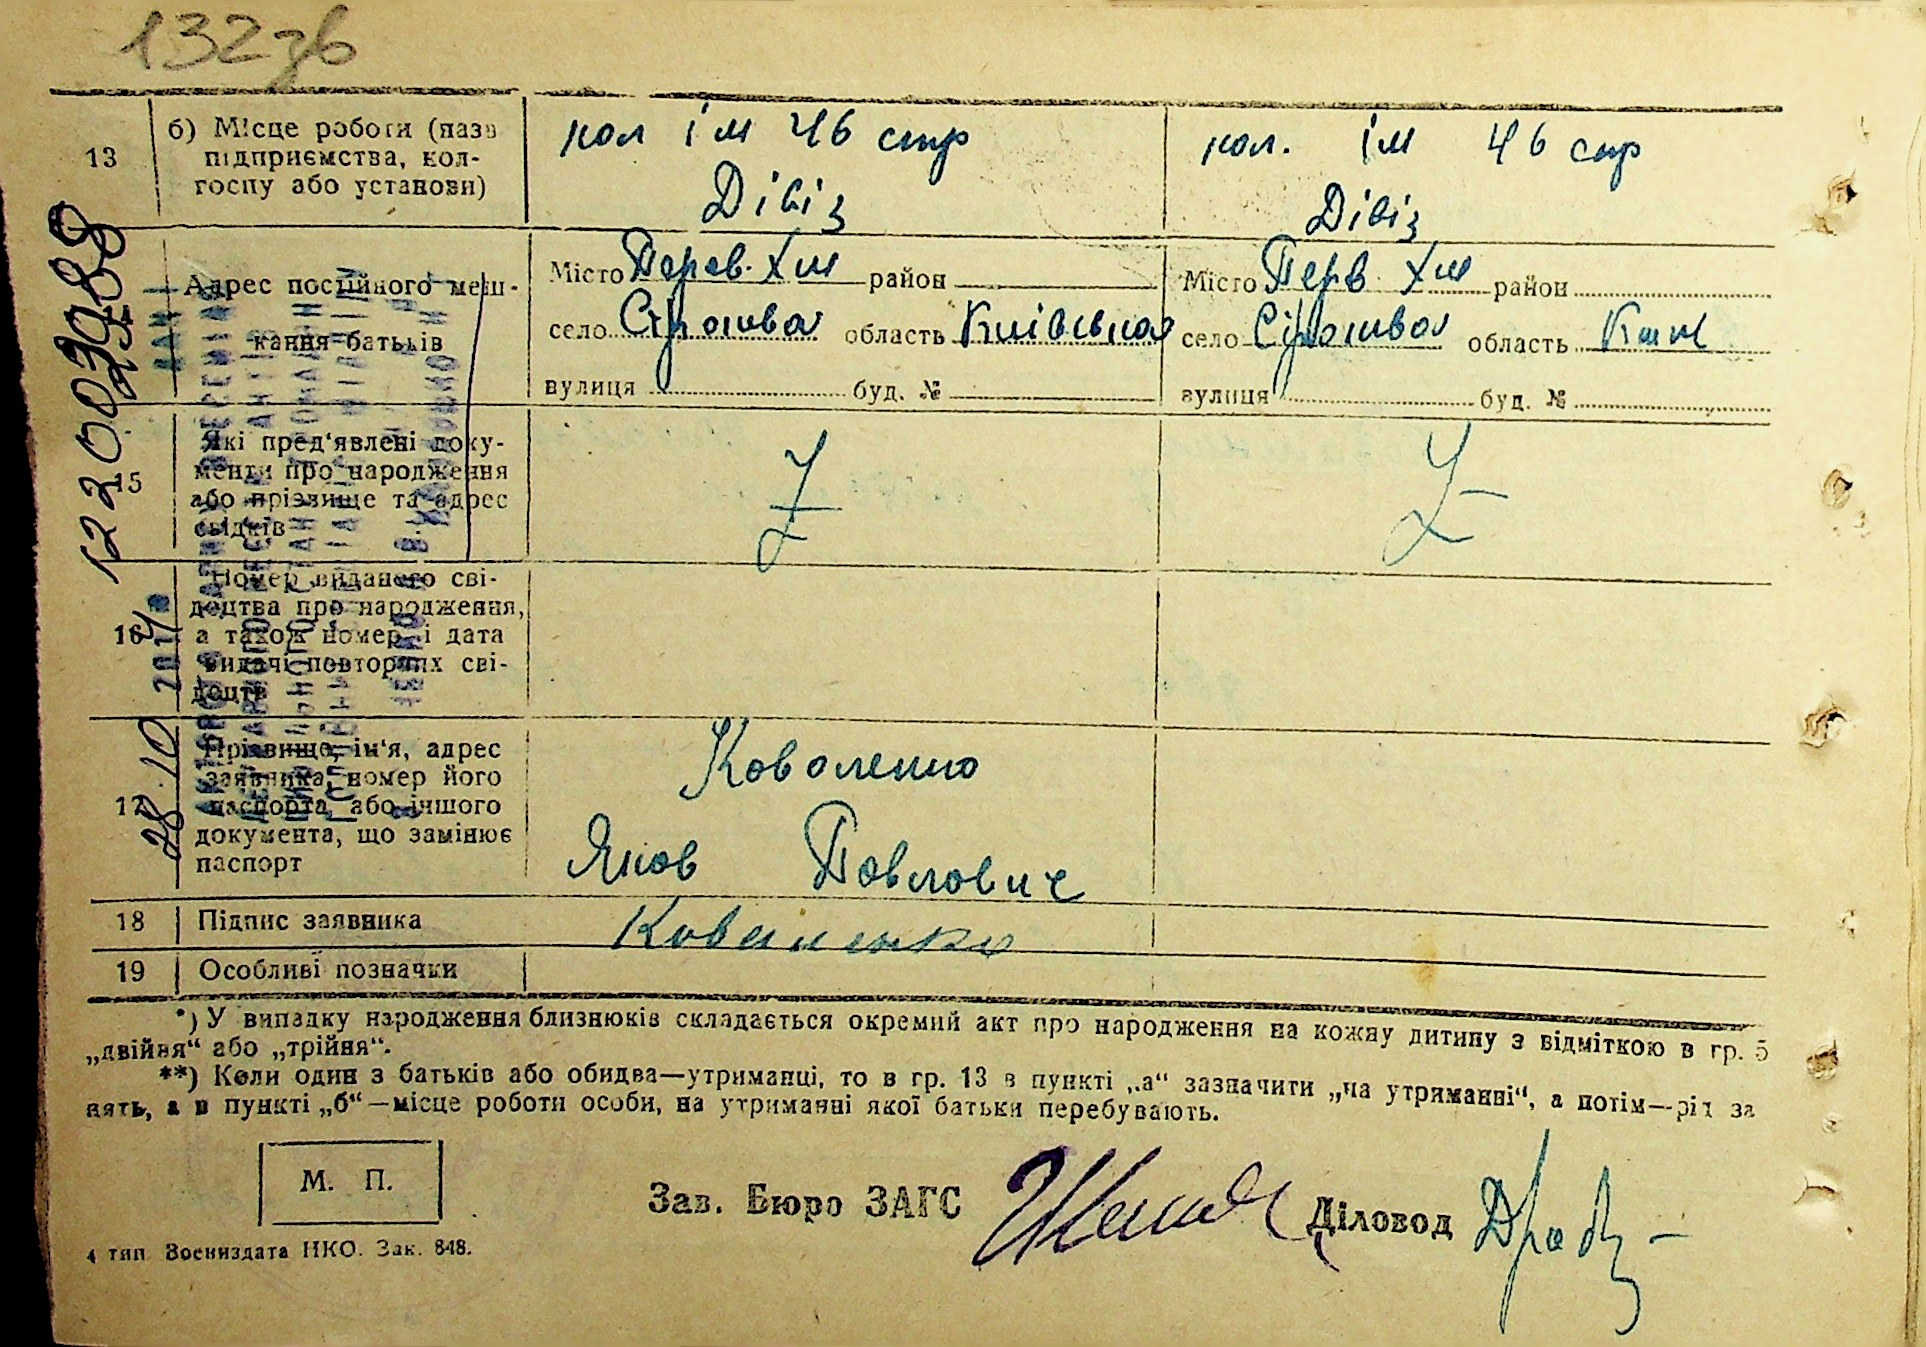 132зв
13
б) Місце роботи (назв
підприємства, кол-
госпу або установи)
кол ім 46 стр
Дівіз
кол. ім 46 стр
Дівіз
Адрес постійного меш-
кання батьків
Місто Перев. Хм район
село Строкова область Київська
вулиця буд. №
Місто Перв Хм район
село область Київ
вулиця буд. №
1220023988
15
Які пред'явлені доку-
менти про народження
або прізвище та адрес
свідків
Z
Z
16
Номер виданого сві-
доцтва про народження,
а також номер і дата
видачі повторних сві-
доцтв
28 10 2014
17
Прізвище, ім'я, адрес
заявника, номер його
паспорта або іншого
документа, що замінює
паспорт
Коваленко
Яков Павлович
18
Підпис заявника
Коваленко
19
Особливі позначки
*) У випадку народження близнюків складається окремий акт про народження на кожну дитину з відміткою в гр. 5
„двійня“ або „трійня“.
**) Коли один з батьків або обидва—утриманці, то в гр. 13 в пункті „а“ зазначити „на утриманні“, а потім—рід за
нять, а в пункті „б“—місце роботи особи, на утриманні якої батьки перебувають.
М. П.
Зав. Бюро ЗАГС
Діловод
4 тип Воениздата НКО. Зак. 848.